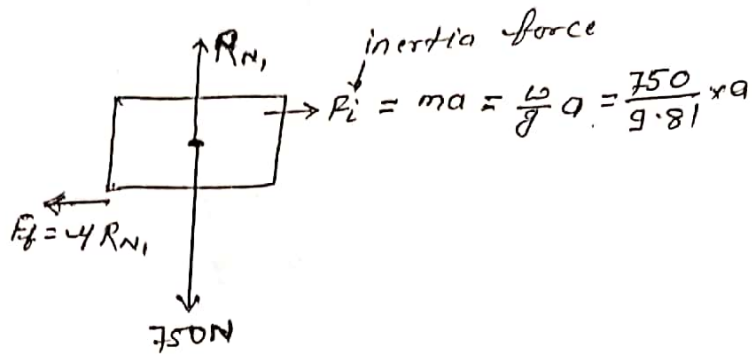 inertia force
R_N₁
Fi = ma = w/g a = 750/9.81 × a
F_f = μ R_N₁
750N